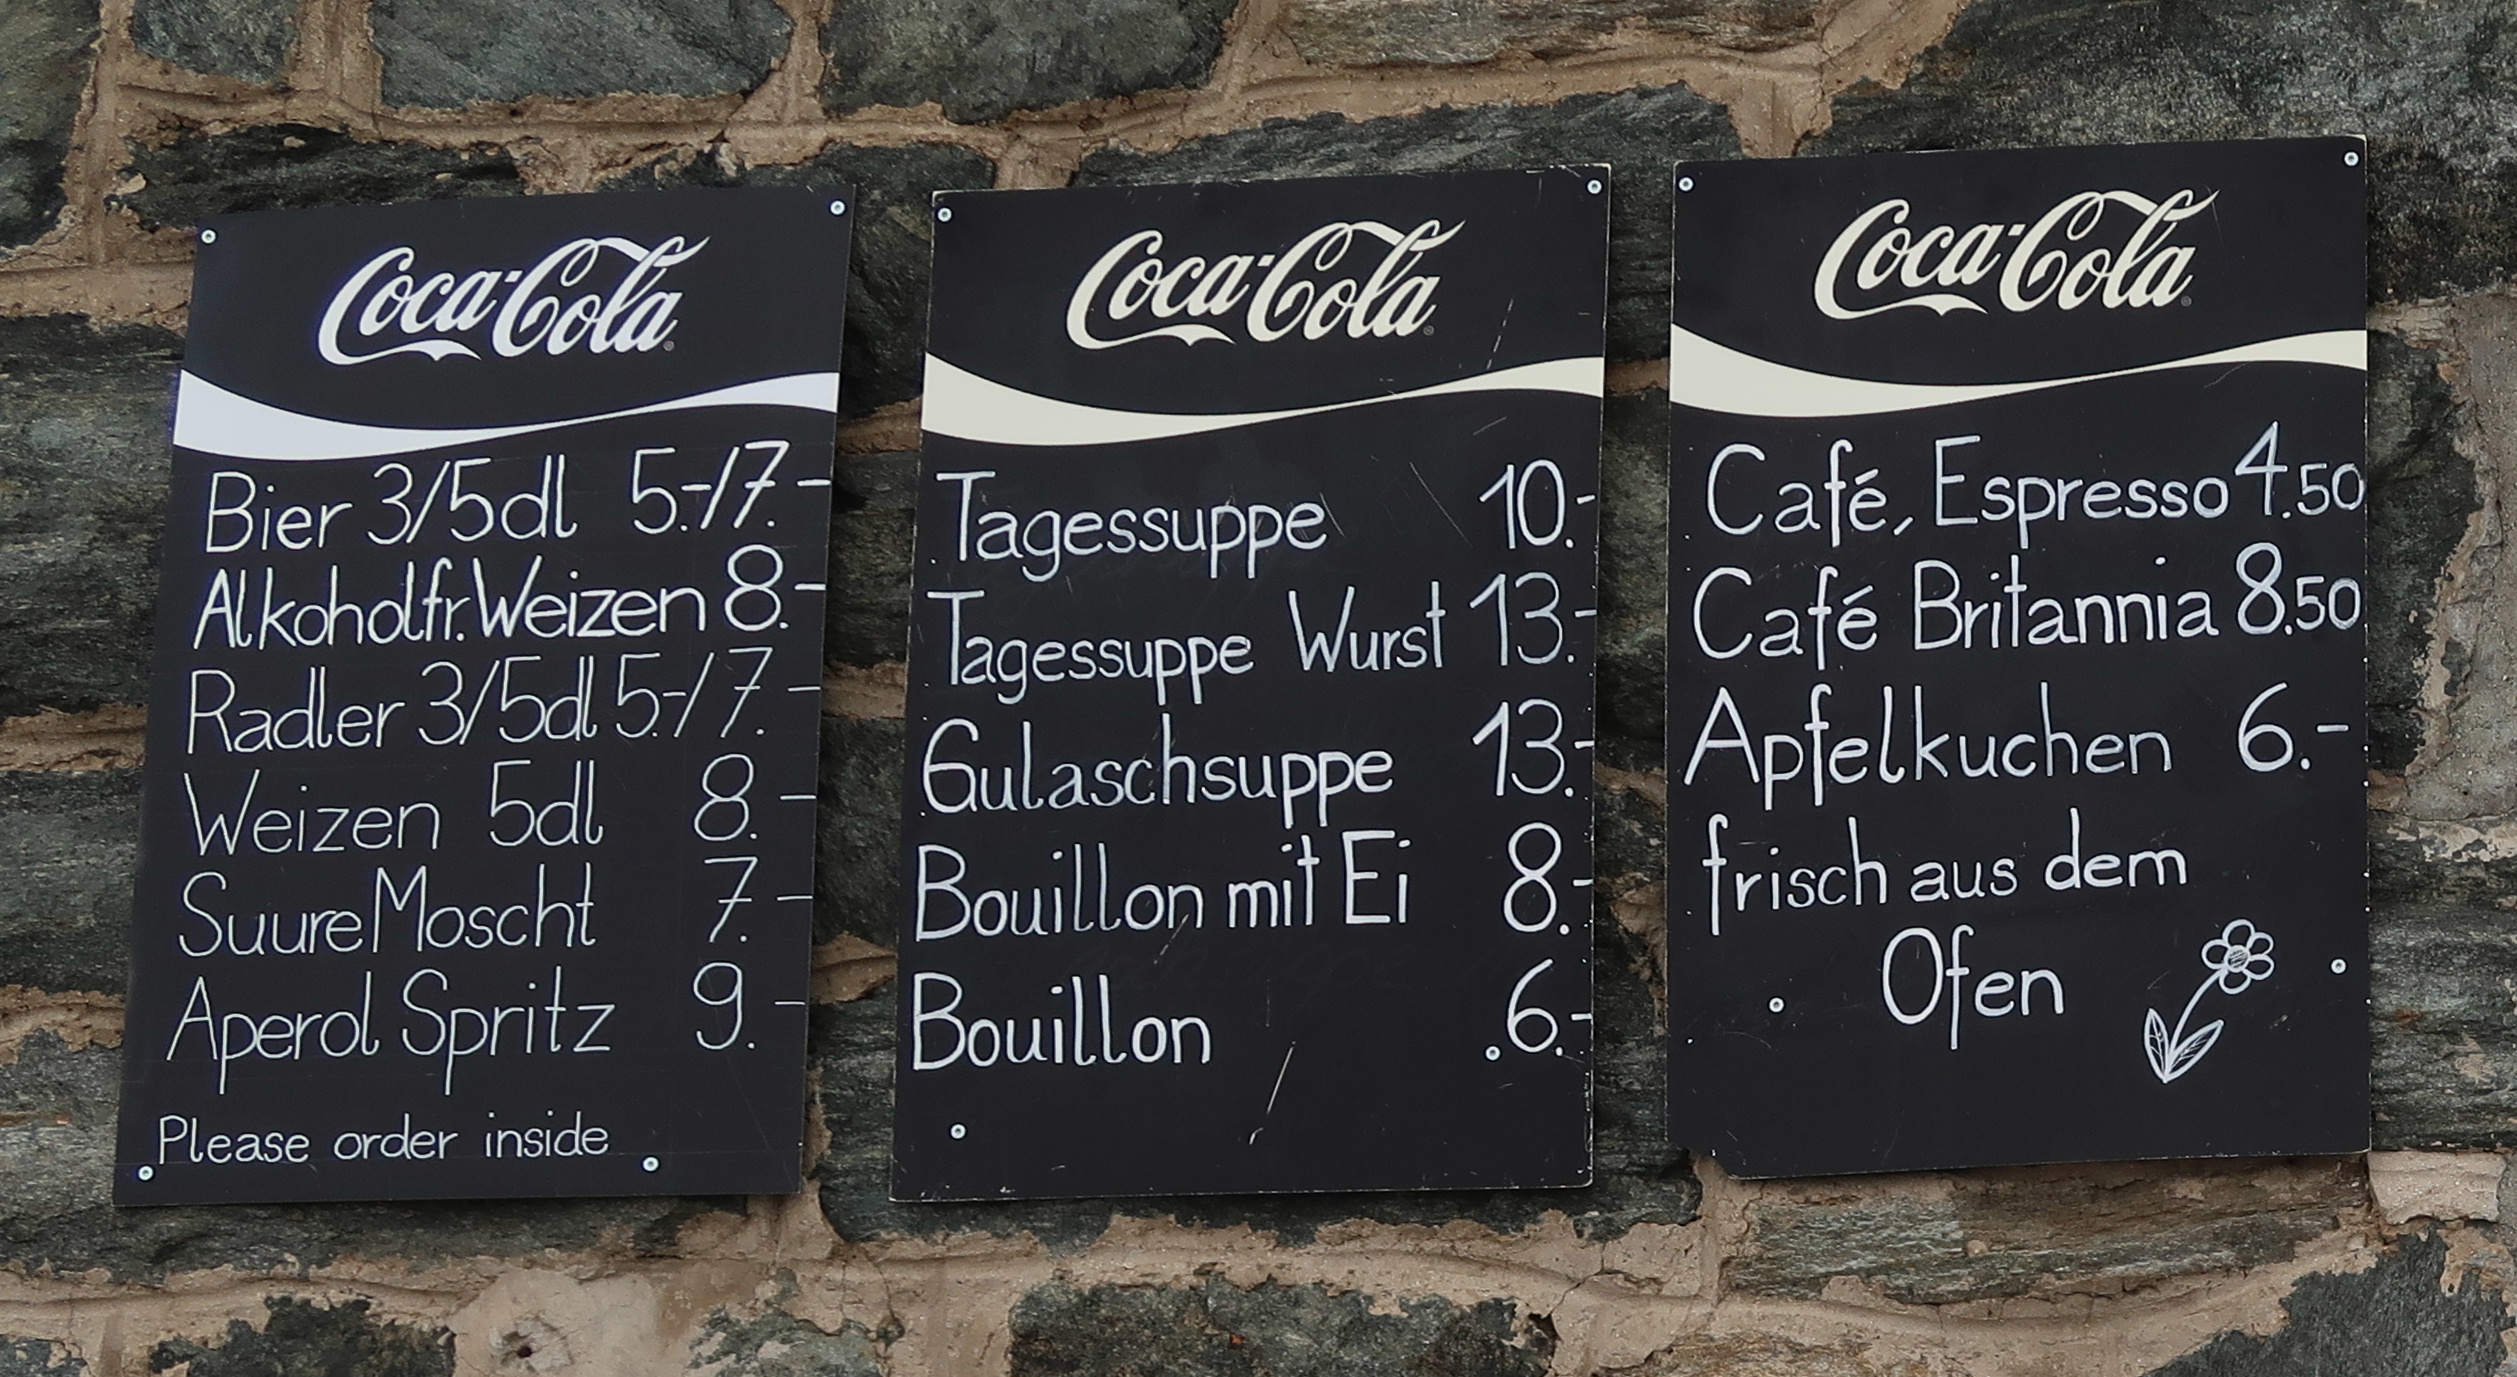 Coca-Cola
Bier 3/5dl 5.-/7.-
Alkoholfr. Weizen 8.-
Radler 3/5dl 5.-/7.-
Weizen 5dl 8.-
Suure Moscht 7.-
Aperol Spritz 9.-
Please order inside
Coca-Cola
Tagessuppe 10.-
Tagessuppe Wurst 13.-
Gulaschsuppe 13.-
Bouillon mit Ei 8.-
Bouillon 6.-
Coca-Cola
Café, Espresso 4.50
Café Britannia 8.50
Apfelkuchen 6.-
frisch aus dem
Ofen